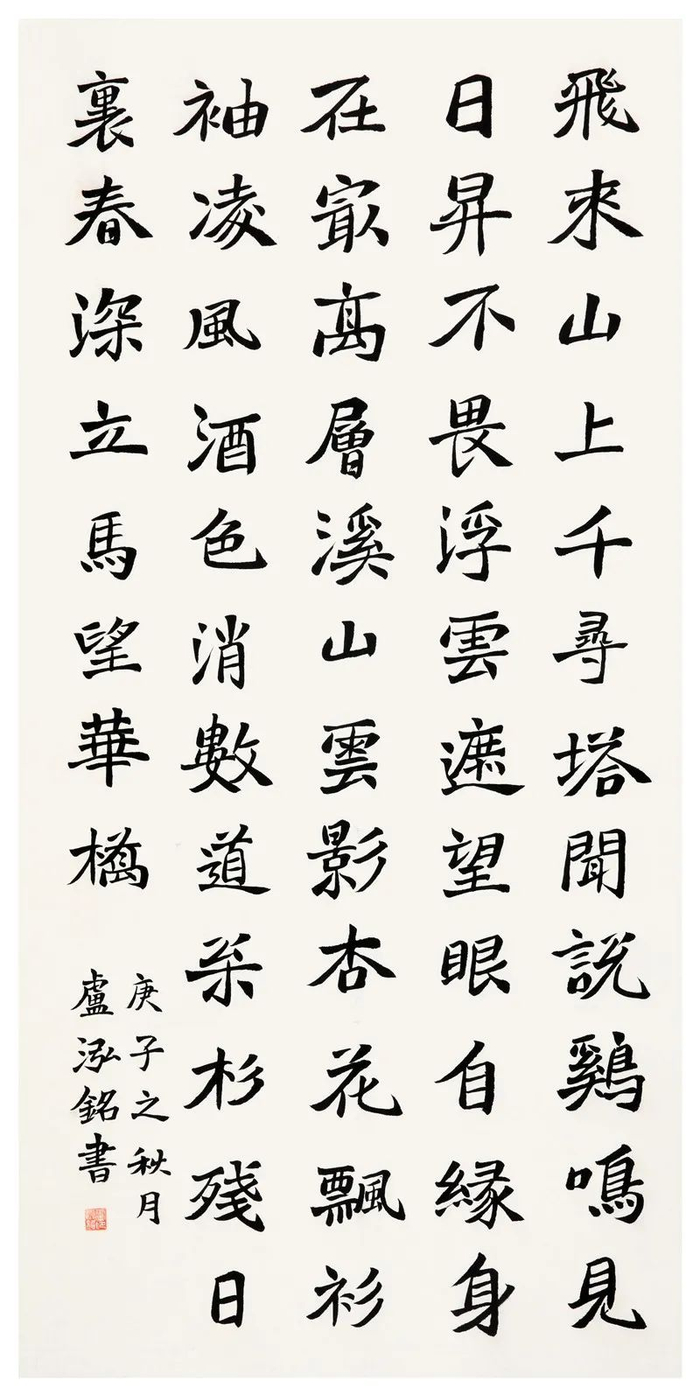 飛來山上千尋塔聞說鷄鳴見
日昇不畏浮雲遮望眼自緣身
在冣髙層溪山雲影杏花飄衫
袖凌風酒色消數道枀杉殘日
裏春深立馬望華槗
庚子之秋月
盧泓銘書